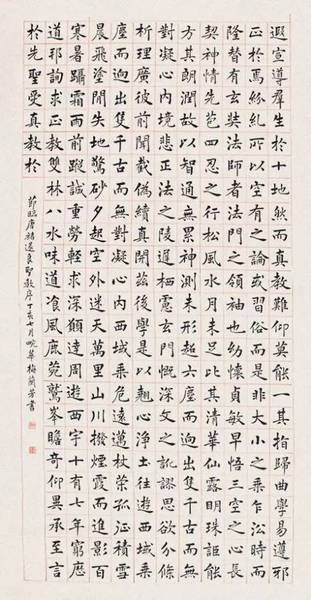 遐宣導群生於十地然而真教難仰莫能一其指歸曲學易遵邪
正於焉紛乣所以空有之論或習俗而是非大小之乘乍沿時而
隆替有玄奘法師者法門之領袖也幼懷貞敏早悟三空之心長
契神情先苞四忍之行松風水月未足比其清華仙露明珠詎能
方其朗潤故以智通無累神測未形超六塵而迥出隻千古而無
對凝心內境悲正法之陵遲栖慮玄門慨深文之訛謬思欲分條
析理廣彼前聞截偽續真開茲後學是以翹心淨土往遊西域乘
塵而迥出隻千古而無對凝心內西域乘危遠邁杖策孤征積雪
晨飛塗間失地驚砂夕起空外迷天萬里山川撥煙霞而進影百
寒暑躡霜雨前蹤誠重勞輕求深願達周遊西宇十有七年窮歷
道邦詢求正教雙林八水味道飡風鹿菀鷲峯瞻奇仰異承至言
於先聖受真教於
節臨唐褚遂良聖教序丁亥七月畹華梅蘭芳書